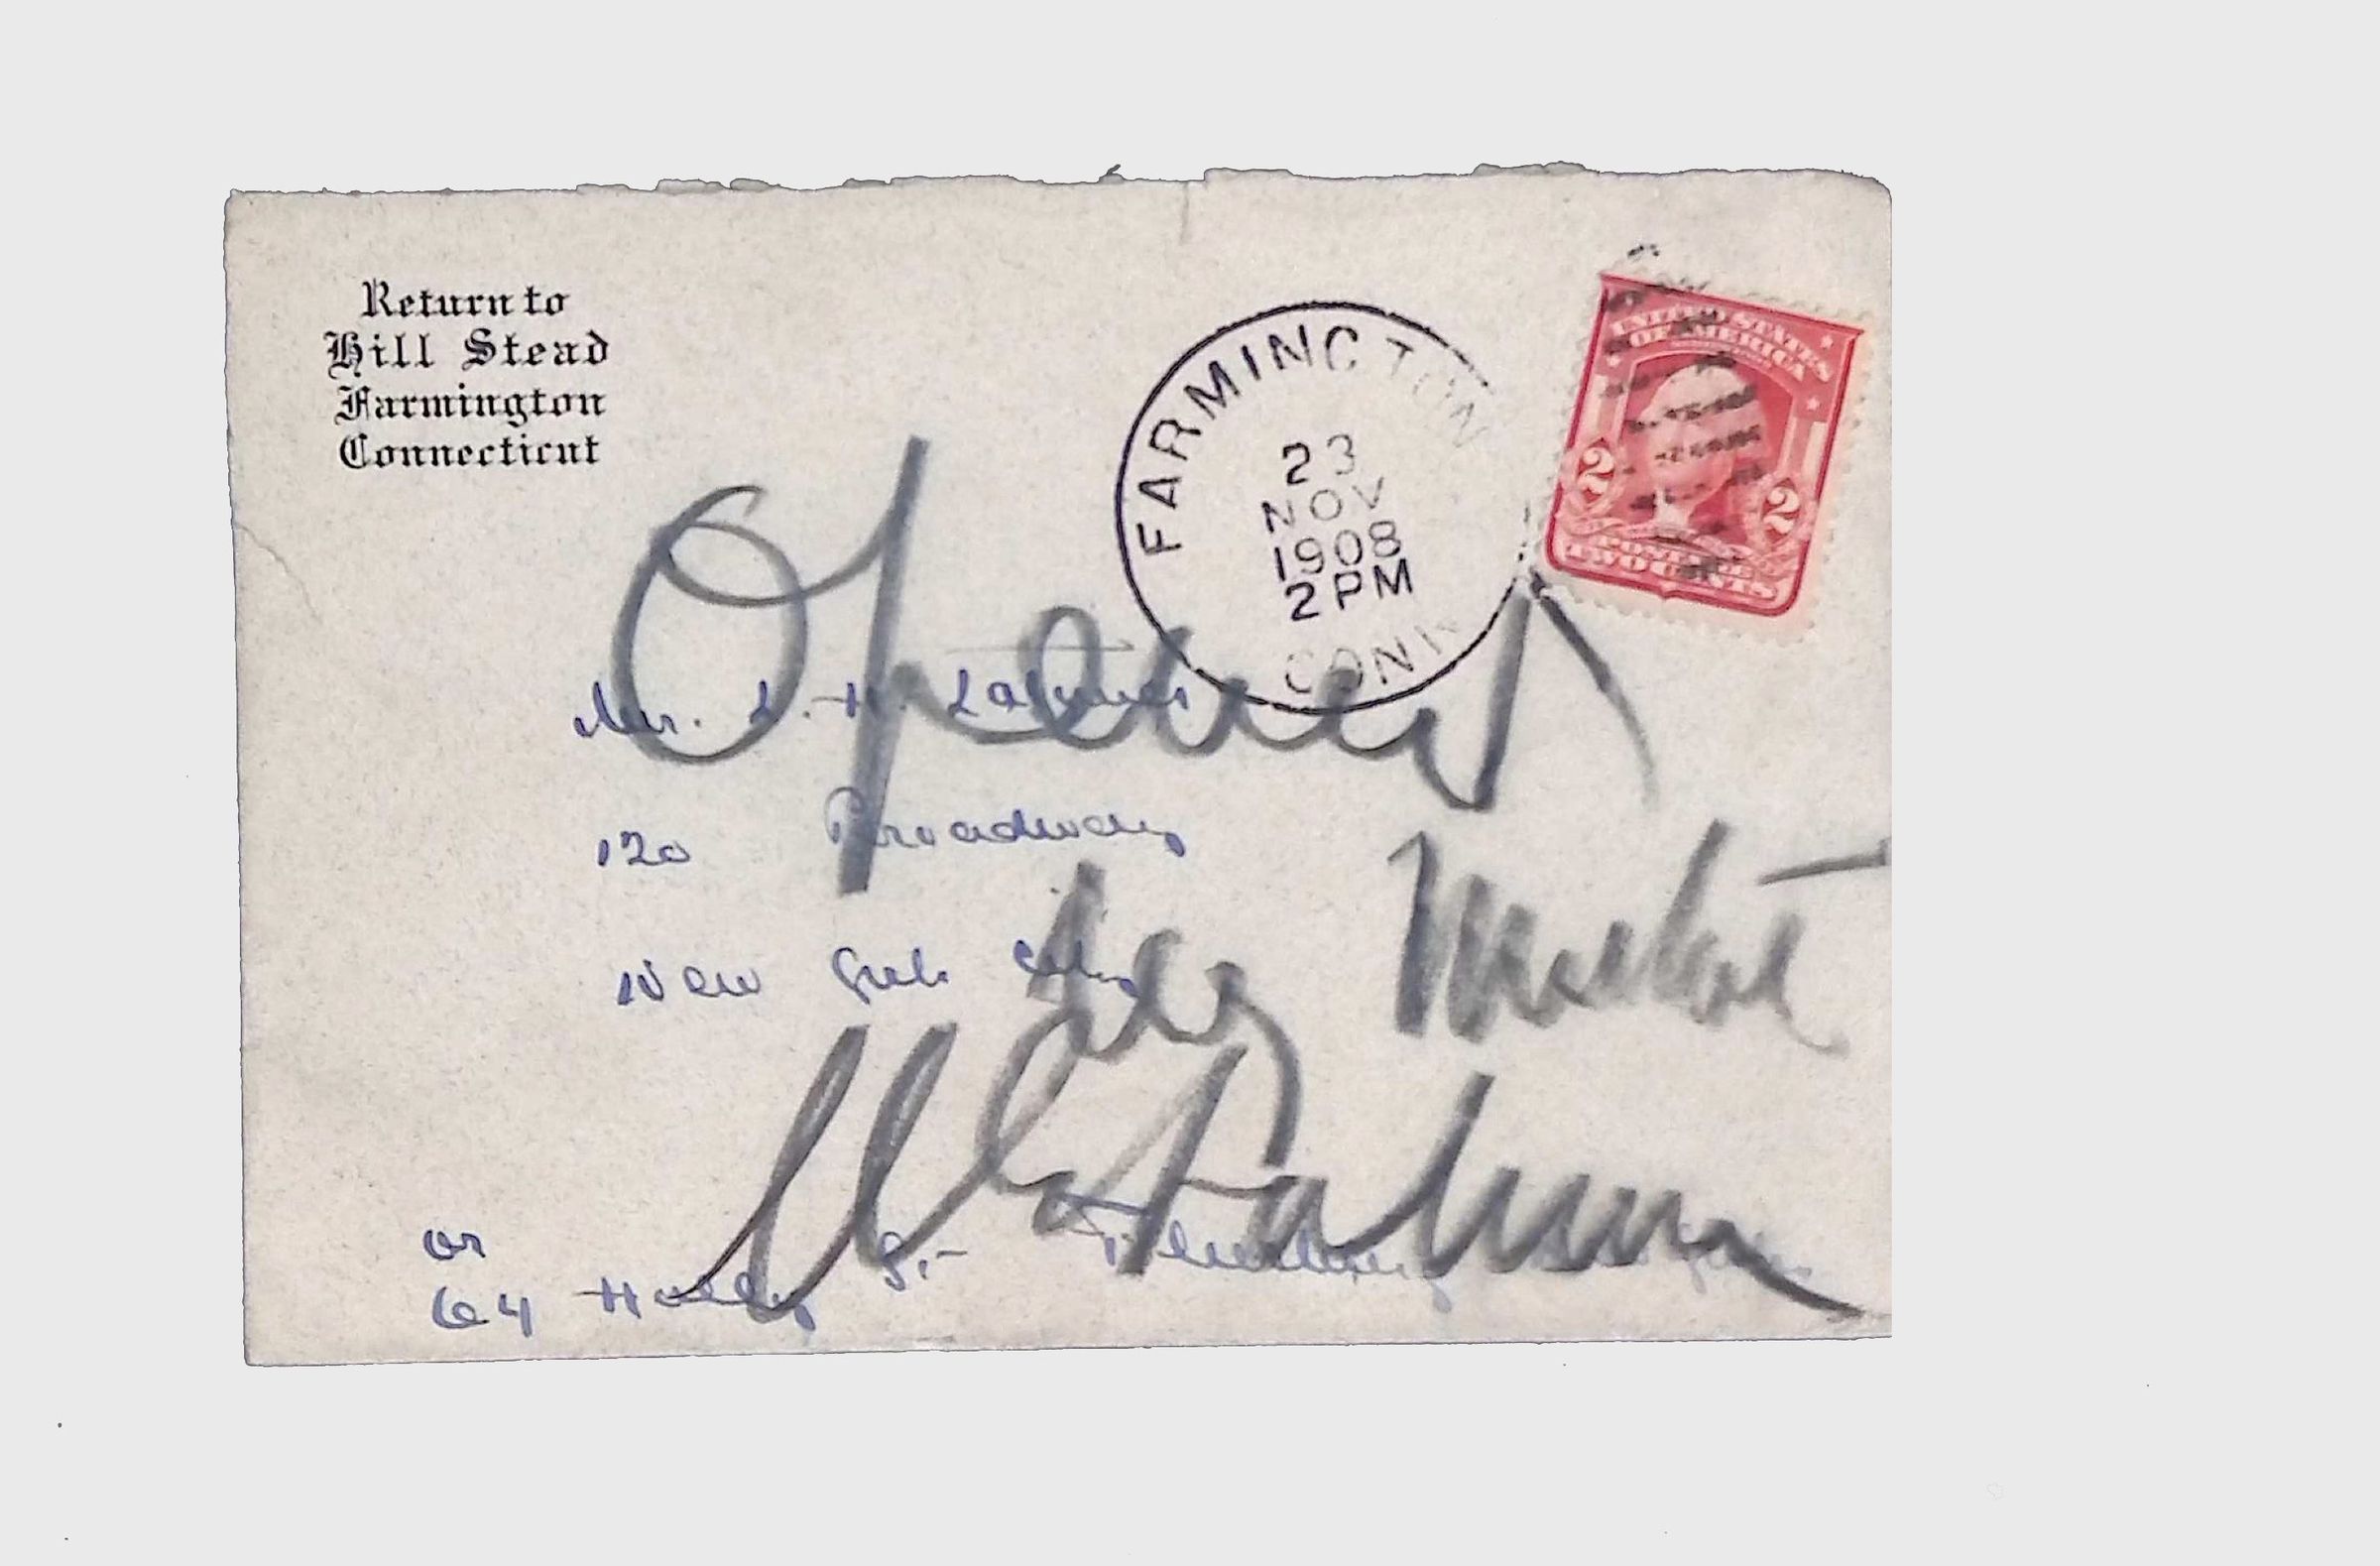 Return to
Hill Stead
Farmington
Connecticut
FARMINGTON
23
NOV
1908
2 PM
CONN
UNITED STATES
OF AMERICA
2 2
POSTAGE
TWO CENTS
Opened
by Mistake
Mr. L. H.
120 Broadway
New York City
or
64 Holly St.